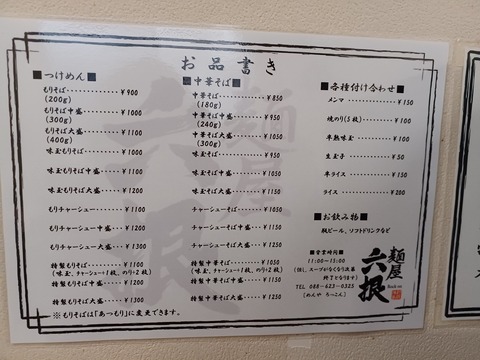 お品書き
■つけめん■
もりそば ¥900
(200g)
もりそば中盛 ¥1000
(300g)
もりそば大盛 ¥1100
(400g)
味玉もりそば ¥1000
味玉もりそば中盛 ¥1100
味玉もりそば大盛 ¥1200
もりチャーシュー ¥1100
もりチャーシュー中盛 ¥1200
もりチャーシュー大盛 ¥1300
特製もりそば ¥1100
(味玉、チャーシュー1枚、のり2枚)
特製もりそば中盛 ¥1200
特製もりそば大盛 ¥1300
※もりそばは「あつもり」に変更できます。
■中華そば■
中華そば ¥850
(180g)
中華そば中盛 ¥950
(240g)
中華そば大盛 ¥1050
(300g)
味玉そば ¥950
味玉そば中盛 ¥1050
味玉そば大盛 ¥1150
チャーシューそば ¥1050
チャーシューそば中盛 ¥1150
チャーシューそば大盛 ¥1250
特製中華そば ¥1050
(味玉、チャーシュー1枚、のり2枚)
特製中華そば中盛 ¥1150
特製中華そば大盛 ¥1250
■各種付け合わせ■
メンマ ¥150
焼のり(5枚) ¥100
半熟味玉 ¥100
生玉子 ¥50
半ライス ¥150
ライス ¥200
■お飲み物■
瓶ビール、ソフトドリンクなど
■営業時間■
11:00~15:00
(但し、スープがなくなり次第
終了となります)
TEL 088-623-0325
(めんや ろっこん)
麺屋
六根